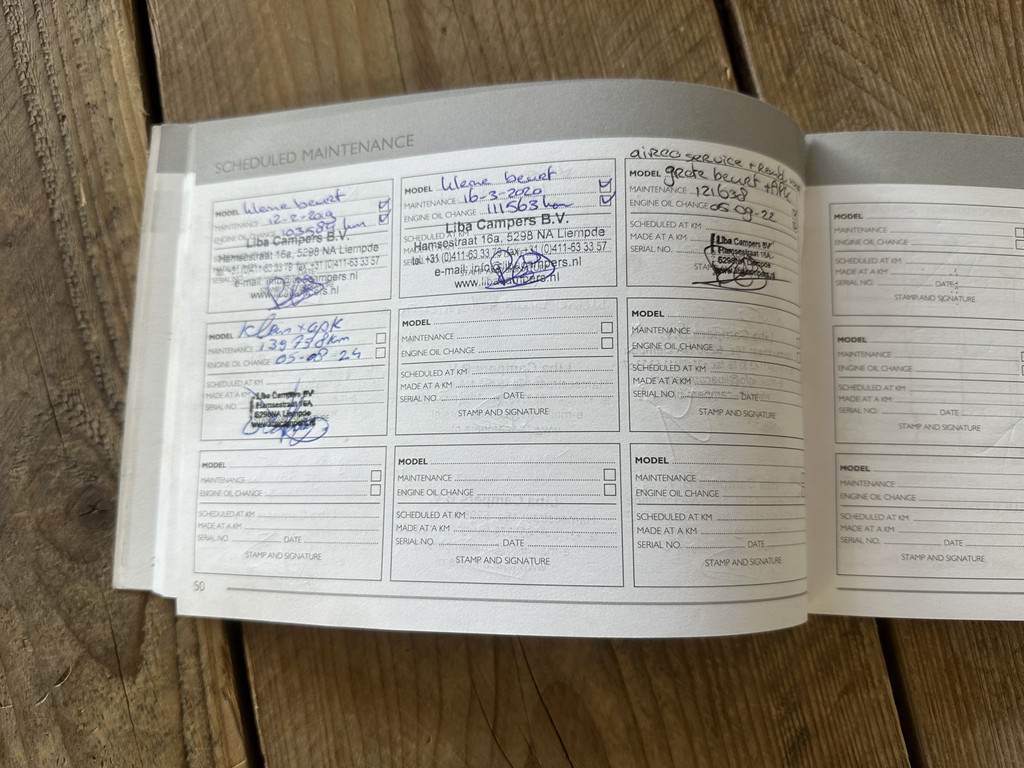 SCHEDULED MAINTENANCE
MODEL kleine beurt
MAINTENANCE 12-2-2019
ENGINE OIL CHANGE 103589 km
Liba Campers B.V.
Hamsestraat 16a, 5298 NA Liempde
tel. +31 (0)411-63 33 79 fax +31 (0)411-63 33 57
e-mail: info@libacampers.nl
www.libacampers.nl
MODEL kleine beurt
MAINTENANCE 16-3-2020
ENGINE OIL CHANGE 111563 km
Liba Campers B.V.
Hamsestraat 16a, 5298 NA Liempde
tel. +31 (0)411-63 33 79 fax +31 (0)411-63 33 57
e-mail: info@libacampers.nl
www.libacampers.nl
airco service +
MODEL grote beurt + APK
MAINTENANCE 121638
ENGINE OIL CHANGE 05-09-22
SCHEDULED AT KM
MADE AT A KM
SERIAL NO.
Liba Campers BV
Hamsestraat 16A
5298NA Liempde
www.libacampers.nl
MODEL klein + apk
MAINTENANCE 139738km
ENGINE OIL CHANGE 05-08-24
SCHEDULED AT KM
MADE AT A KM
SERIAL NO.
Liba Campers BV
Hamsestraat 16A
5298NA Liempde
www.libacampers.nl
MODEL
MAINTENANCE
ENGINE OIL CHANGE
SCHEDULED AT KM
MADE AT A KM
SERIAL NO. DATE
STAMP AND SIGNATURE
MODEL
MAINTENANCE
ENGINE OIL CHANGE
SCHEDULED AT KM
MADE AT A KM
SERIAL NO. DATE
STAMP AND SIGNATURE
MODEL
MAINTENANCE
ENGINE OIL CHANGE
SCHEDULED AT KM
MADE AT A KM
SERIAL NO. DATE
STAMP AND SIGNATURE
MODEL
MAINTENANCE
ENGINE OIL CHANGE
SCHEDULED AT KM
MADE AT A KM
SERIAL NO. DATE
STAMP AND SIGNATURE
MODEL
MAINTENANCE
ENGINE OIL CHANGE
SCHEDULED AT KM
MADE AT A KM
SERIAL NO. DATE
STAMP AND SIGNATURE
50
MODEL
MAINTENANCE
ENGINE OIL CHANGE
SCHEDULED AT KM
MADE AT A KM
SERIAL NO. DATE
STAMP AND SIGNATURE
MODEL
MAINTENANCE
ENGINE OIL CHANGE
SCHEDULED AT KM
MADE AT A KM
SERIAL NO. DATE
STAMP AND SIGNATURE
MODEL
MAINTENANCE
ENGINE OIL CHANGE
SCHEDULED AT KM
MADE AT A KM
SERIAL NO. DATE
STAMP AND SIGNATURE